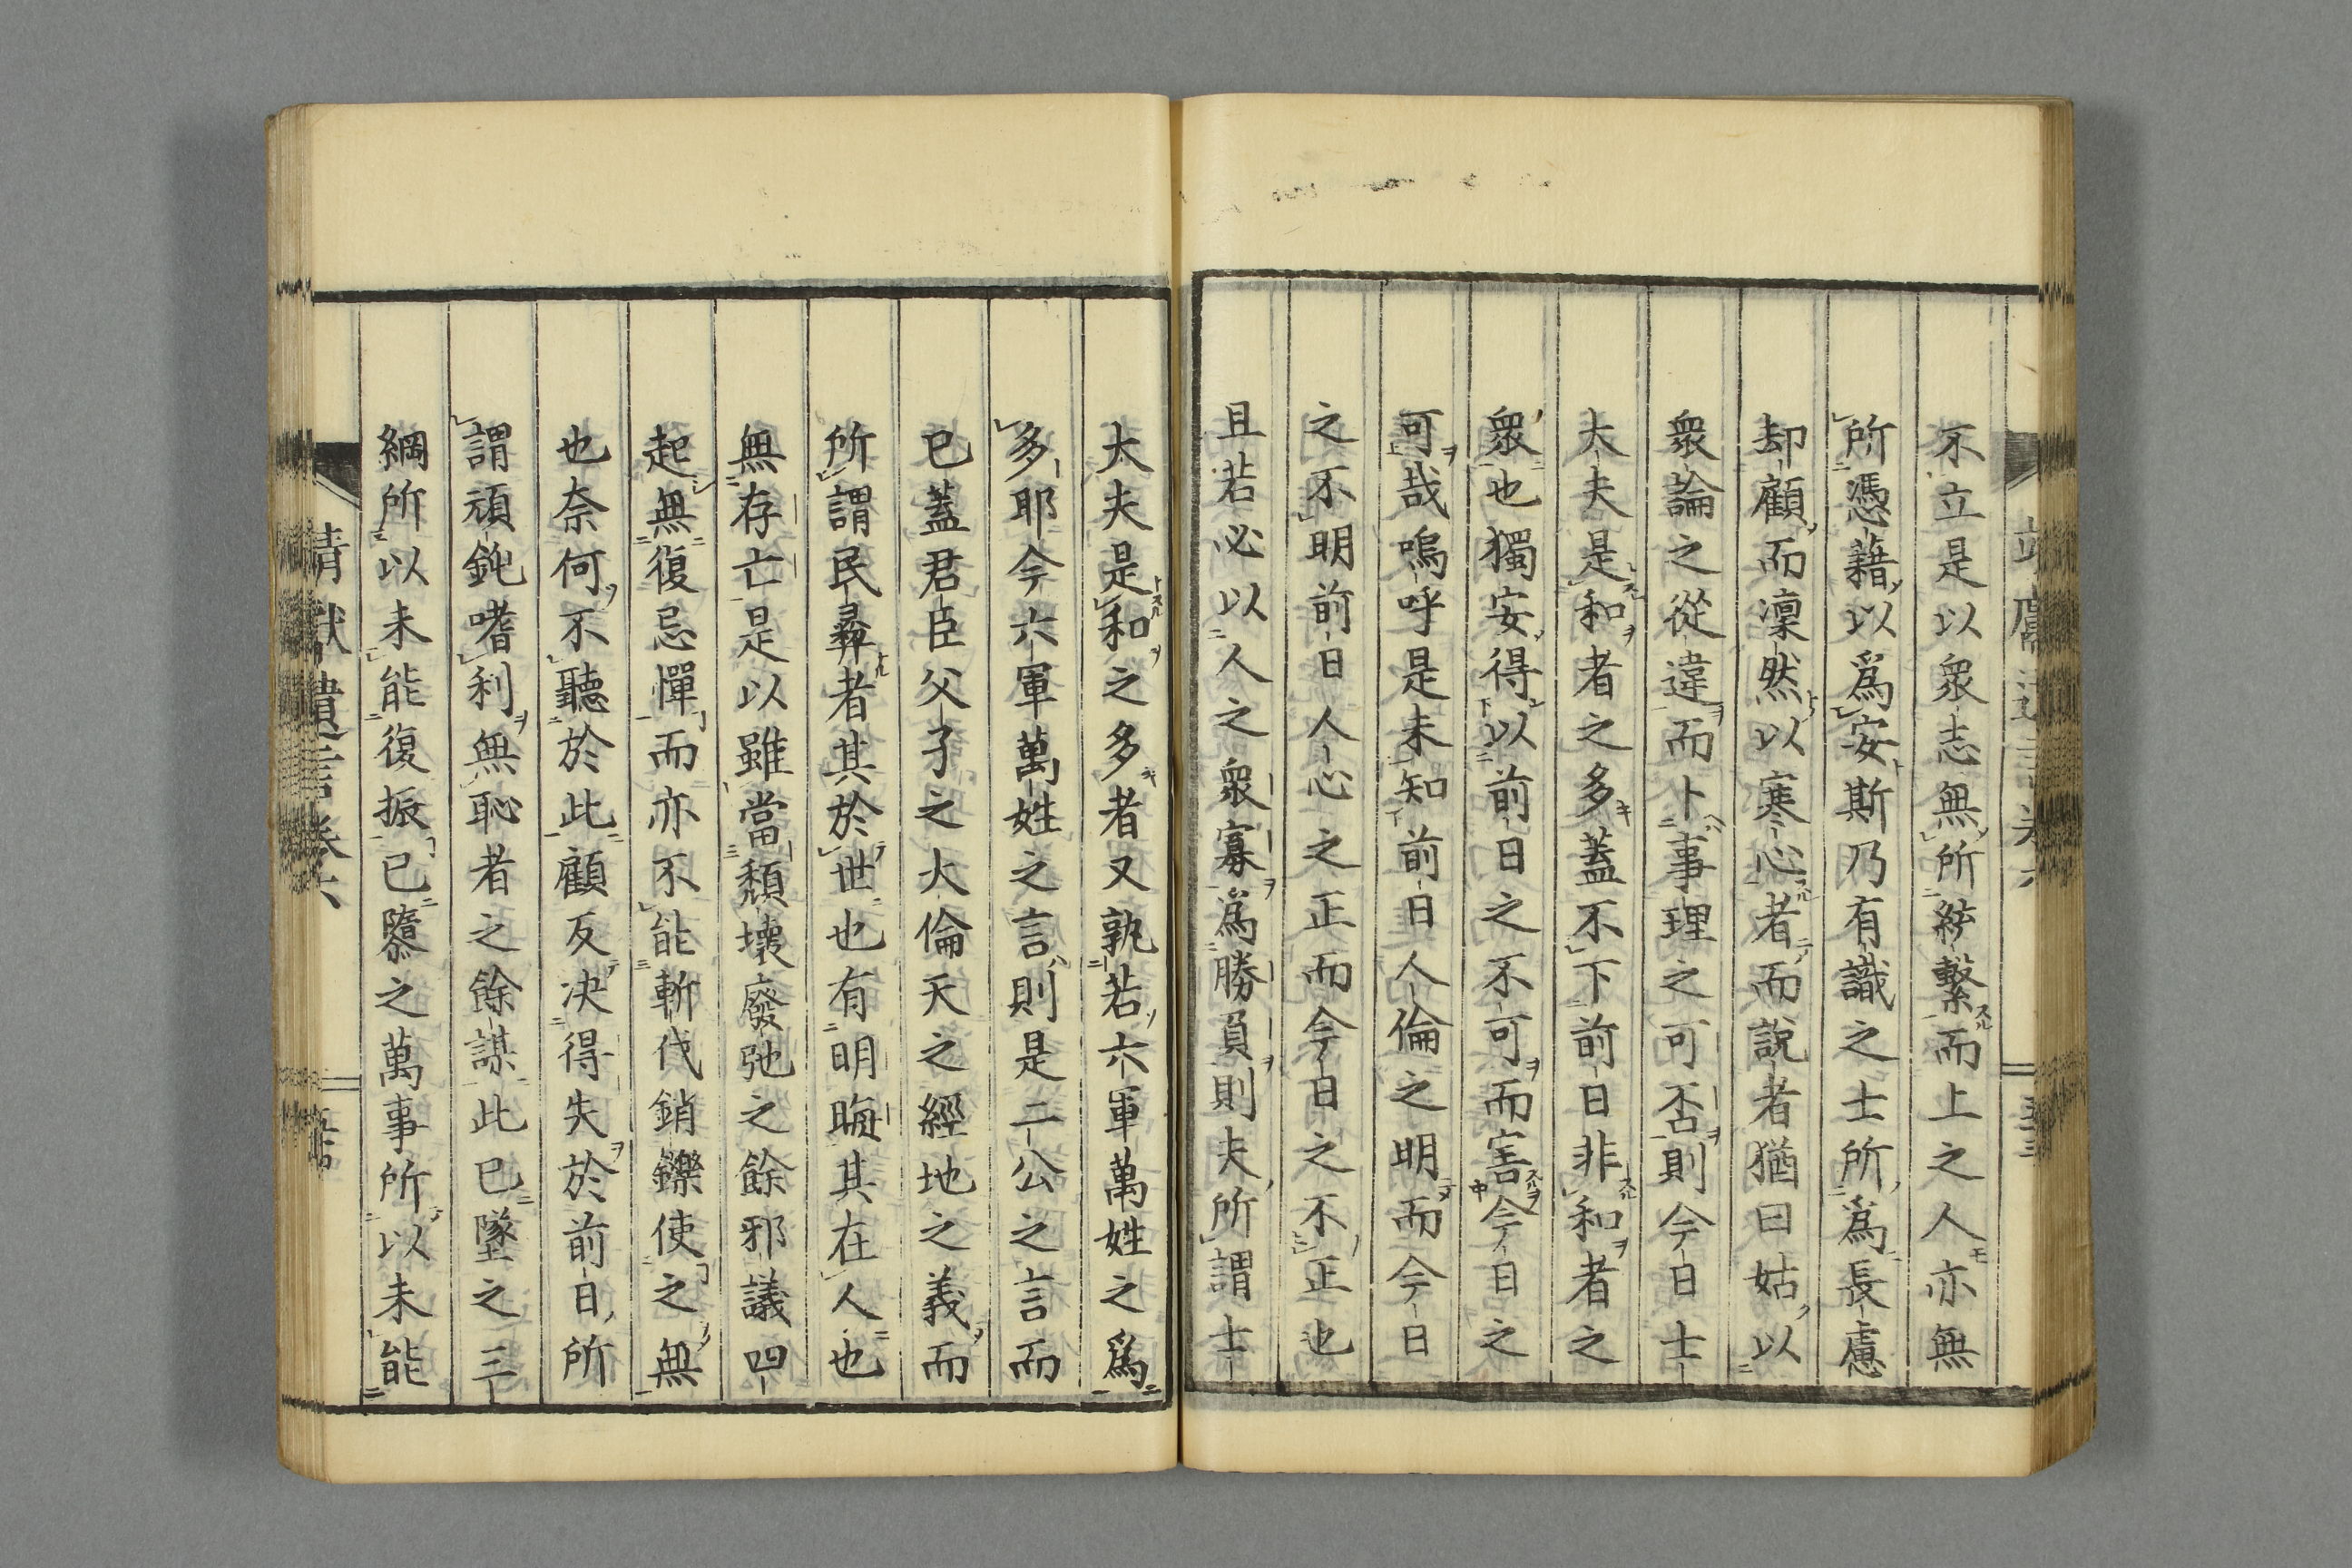 不立是以衆志無所綍繫而上之人亦無
所憑藉以爲安斯乃有識之士所爲長慮
却顧而凜然以寒心者而説者猶曰姑以
衆論之從違而卜事理之可否則今日士
大夫是和者之多蓋不下前日非和者之
衆也獨安得以前日之不可而害今日之
可哉嗚呼是未知前日人倫之明而今日
之不明前日人心之正而今日之不正也
且若必以人之衆寡爲勝負則夫所謂士
大夫是和之多者又孰若六軍萬姓之爲
多耶今六軍萬姓之言則是二公之言而
已蓋君臣父子之大倫天之經地之義而
所謂民彝者其於世也有明晦其在人也
無存亡是以雖當頽壞廢弛之餘邪議四
起無復忌憚而亦不能斬伐銷鑠使之無
也奈何不聽於此顧反决得失於前日所
謂頑鈍嗜利無恥者之餘謀此已墜之三
綱所以未能復振已隳之萬事所以未能
靖獻遺言卷六